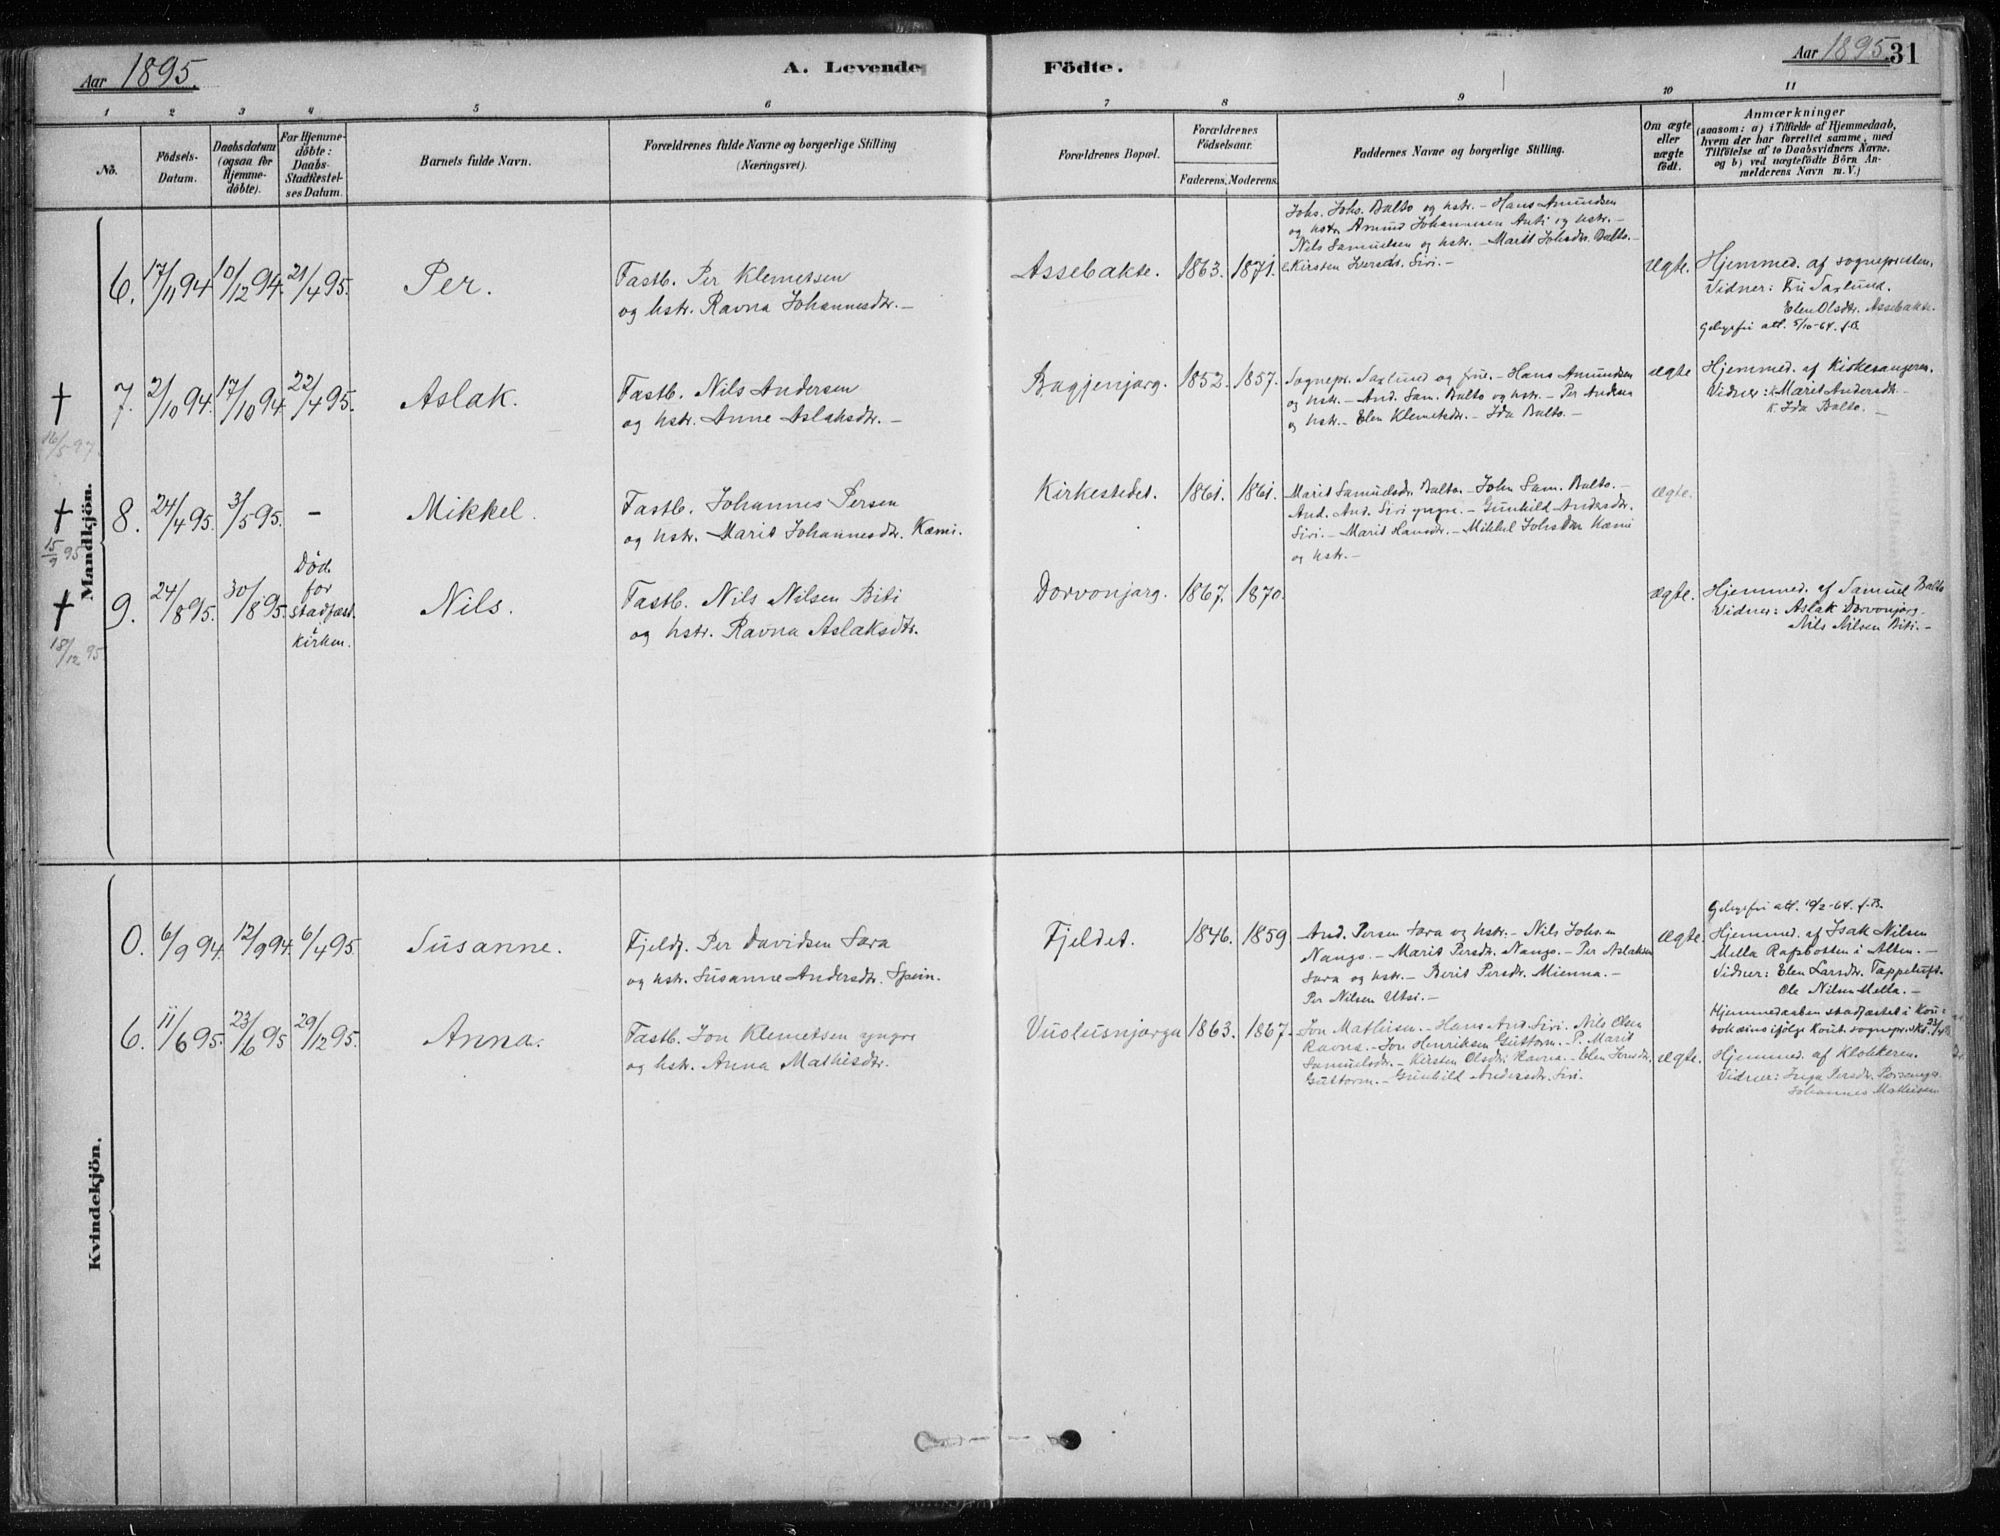 Aar 1895.
A. Levende Födte.
Aar 1895. 31
1 2 3 4 5 6 7 8 9 10 11
No.
Födsels-
Datum.
Daabsdatum
(ogsaa for
Hjemme-
döbte).
For Hjemme-
döbte:
Daabs-
Stadfæstel-
ses Datum.
Barnets fulde Navn.
Forældrenes fulde Navne og borgerlige Stilling
(Næringsvei).
Forældrenes Bopæl.
Forældrenes
Födselsaar.
Faderens. Moderens.
Faddernes Navne og borgerlige Stilling.
Om ægte
eller
uægte
födt.
Anmærkninger
(saasom: a) i Tilfælde af Hjemmedaab,
hvem der har forrettet samme, med
Tilföielse af to Daabsvidners Navne.
og b) ved uægtefödte Börn An-
melderens Navn m. V.)
Mandkjön.
6. 17/11 94 10/12 94. 21/4 95.
Per.
Fastb. Per Klemetsen
og hstr. Ravna Johannesdtr. —
Assebakte. 1863. 1871.
Johs. Johs. Balto og hstr. — Hans Amundsen
og hstr. Amund Johannesen Anti og hstr. —
Nils Samuelsen og hstr. — Marit Johsdtr. Balto. —
Kirsten Iversdtr. Siri. —
Ægte.
Hjemmed. af sognepresten.
Vidner: Fru Saxlund.
Elen Olsdtr. Assebakte.
5/10-64. f.B.
†
16/5 97.
7. 2/10 94. 17/10 94 22/4 95.
Aslak.
Fastb. Nils Andersen
og hstr. Anne Aslaksdtr. —
Bagjenjarg. 1852. 1857.
Sognepr. Saxlund og frue. — Hans Amundsen
og hstr. — And. Sam. Balto og hstr. — Per Andersen
og hstr. — Elen Klemetsdtr. — Ida Balto. —
Ægte
Hjemmed. af Kirkesangeren.
Vidner: Marit Andersdtr. —
K. Ida Balto. —
†
15/9 95
8. 24/4 95. 3/5 95. —
Mikkel.
Fastb. Johannes Persen
og hstr. Marit Johannesdtr. Kæmi.
Kirkestedet. 1861. 1861.
Marit Samuelsdr. Balto. — John Sam. Balto. —
And. And. Siri yngre. — Gunhild Andersdtr.
Siri. — Marit Hansdtr. — Mikkel Kæmi
og hstr. —
ægte.
†
18/12 95
9. 24/8 95. 30/8 95.
Död
for
stadfæst.
i
kirken.
Nils.
Fastb. Nils Nilsen Biti
og hstr. Ravna Aslaksdtr.
Dorvonjarg. 1867. 1870.
ægte.
Hjemmed. af Samuel Balto
Vidner: Aslak Dorvonjarg.
Nils Nilsen Biti. —
Kvindekjön.
0. 6/9 94. 12/9 94. 6/4 95.
Susanne.
Fjeldf. Per Davidsen Sara
og hstr. Susanne Andersdtr. Spein.
Fjeldet. 1846. 1859
And. Persen Sara og hstr. — Nils Johs.en
Nango. — Marit Persdtr. Nango. — Per Aslaksen
Sara og hstr. — Berit Persdtr. Mienna. —
Per Nilsen Utsi. —
Ægte.
19/2-64. f.B.
Hjemmed. af Isak Nilsen
Mella Rafsbotten i Alten. —
Vidner: Elen Larsdtr. Tappeluft.
Ole Nilsen Mella. —
6. 11/6 95. 23/6 95 29/12 95.
Anna.
Fastb. Jon Klemetsen yngre
og hstr. Anna Mathisdtr.
Vuolusnjarga 1863. 1867.
Jon Mathisen. — Hans And. Siri. Nils Olsen
Ravna. — Jon Henriksen Guttorm. — P. Marit
Samuelsdtr. — Kirsten Olsdtr. Ravna. — Elen
Guttorm. — Gunhild Andersdtr. Siri.
ægte.
Hjemmedaaben stadfæstet i
Hjemmed. af Klokkeren.
Vidner: Inga Persdtr. Porsanger
Johannes Mathisen